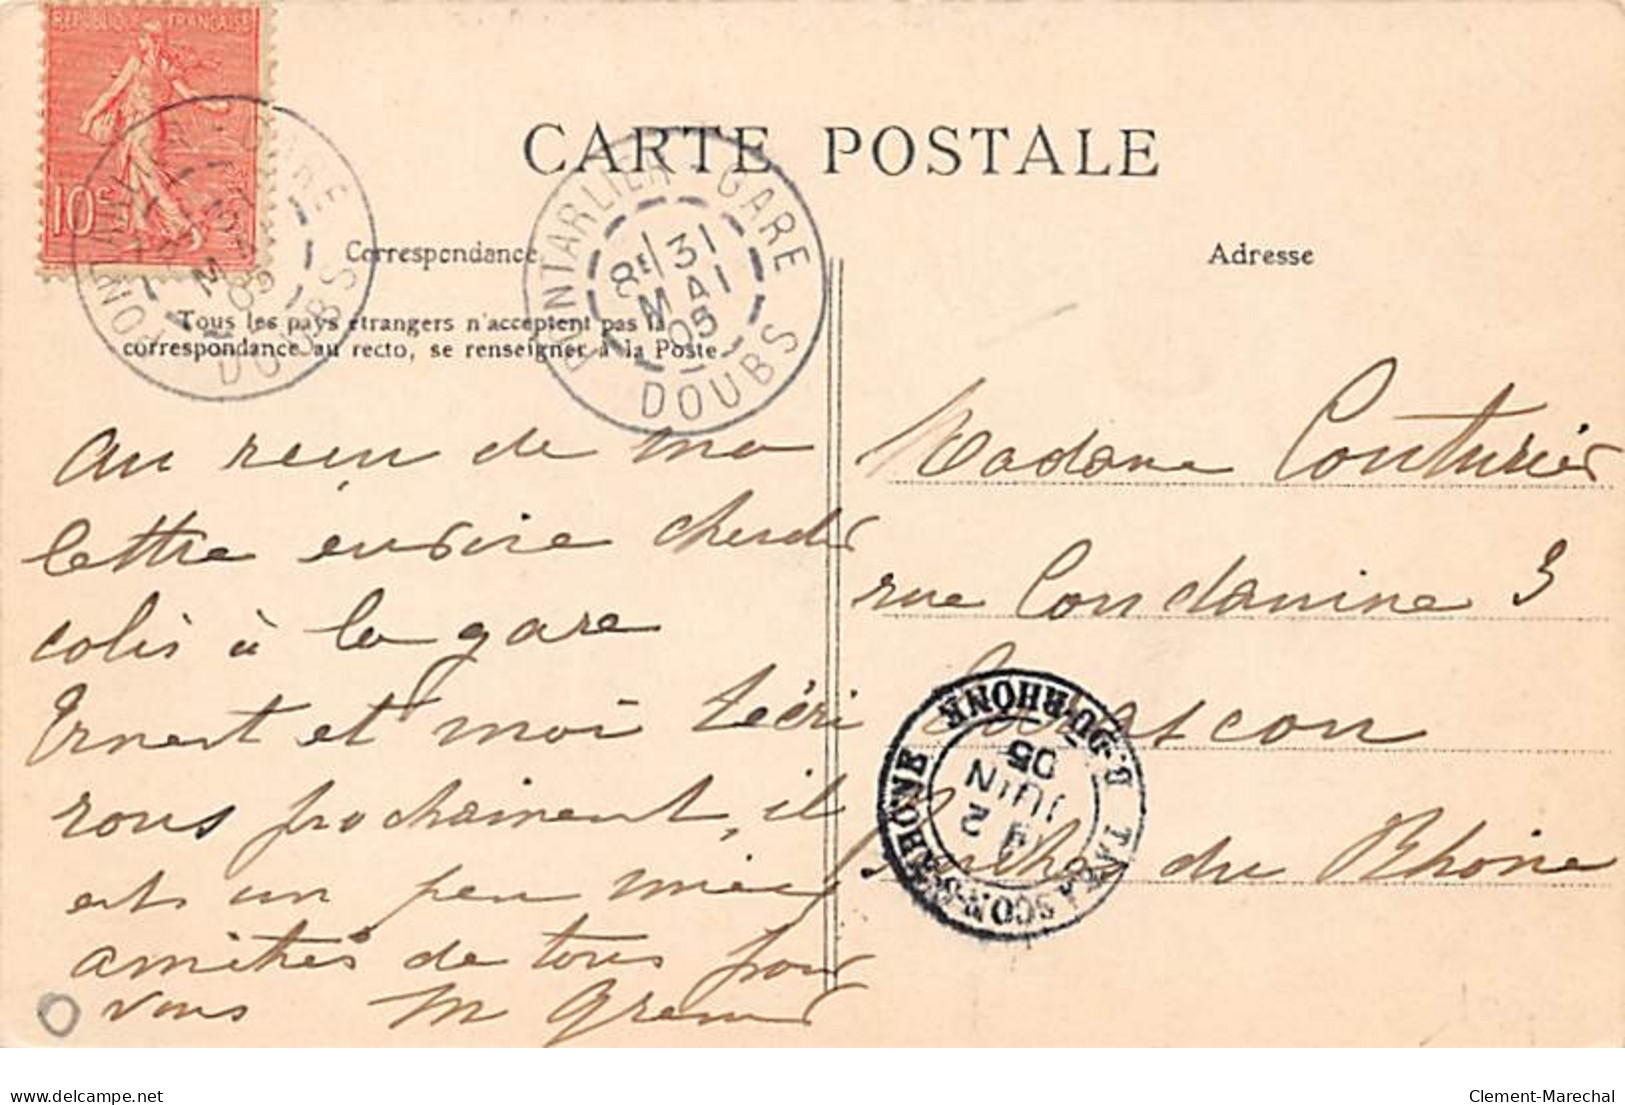 REPUBLIQUE FRANÇAISE
10c
CARTE POSTALE
PONTARLIER - GARE
DOUBS
8E 31
MAI
05
PONTARLIER - GARE
8E 31
MAI
05
DOUBS
Correspondance
Adresse
Tous les pays étrangers n'acceptent pas la
correspondance au recto, se renseigner à la Poste
au reçu de ma
lettre envoie chercher
colis à la gare
Ernest et moi t'écri
rons prochainement, il
est un peu mieux
amitiés de tous pour
vous M
Madame Couturier
rue Condamine 3
Tarascon
Bouches du Rhône
TARASCON-S-RHÔNE
B.-DU-RHONE
2
JUIN
05
delcampe.net
Clement-Marechal